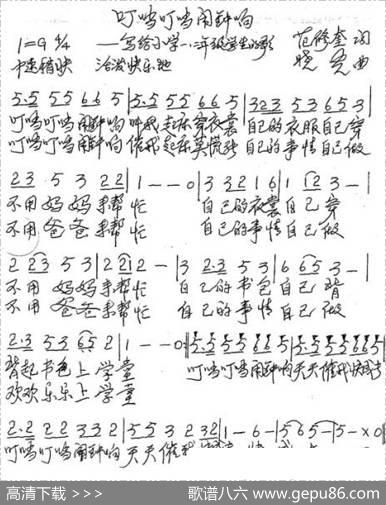 叮当叮当闹钟响
1=G 2/4 ——写给小学一、二年级学生的歌 范修奎 词
中速稍快 活泼快乐地 晓 曲
5.5 5 5 6 6 5 | 5.5 5 5 6 6 5 | 3 2 3 5 3 2 3 |
叮当叮当闹钟响 叫我起床穿衣裳 自己的衣服自己穿
叮当叮当闹钟响 催我起床莫慌张 自己的事情自己做
2 3 5 3 2 2 | 1 - - 0 | 3 3 2 1 6 | 1 1 2 3 - |
不用妈妈来帮忙 自己的衣裳自己穿
不用爸爸来帮忙 自己的事情自己做
2 2 3 5 3 | 2 2 1 2 - | 3 2.3 5 3 | 6 6 5 3 - |
不用妈妈来帮忙 自己的书包自己背
不用爸爸来帮忙 自己的事情自己做
2.3 5 3 5 2 | 1 - - 0 | 5.5 5 5 6 6 5 | 5.5 5 5 6 6 5
背起书包上学堂 叮当叮当闹钟响天天催我快起
欢欢乐乐上学堂
2.2 2 2 3 3 2 | 5 5 3 2 3 2 | 1 - 6 - | 5 6 5 - | 5 - X 0 |
叮当叮当闹钟响 天天催我
高清下载 >>> 歌谱八六 www.gepu86.com